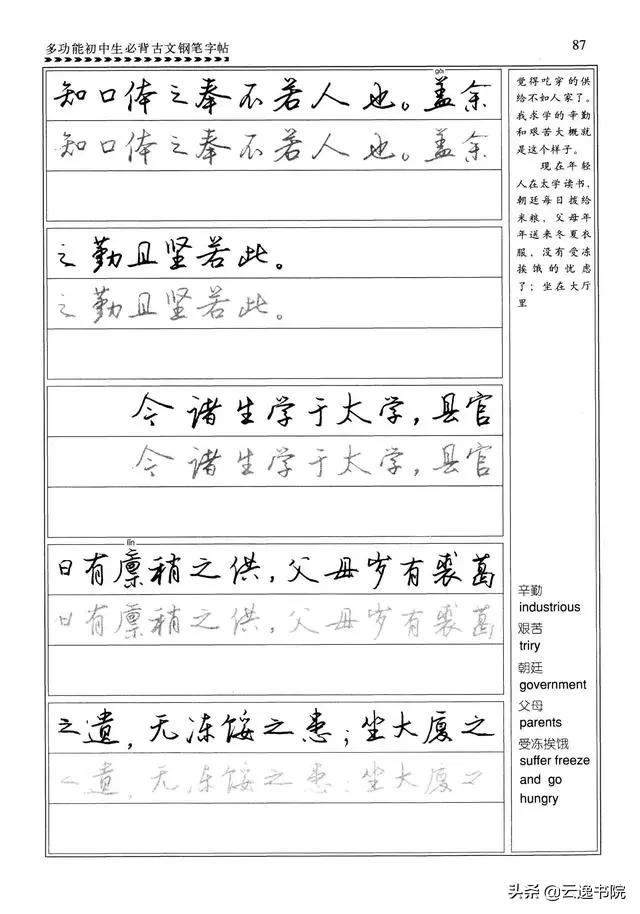 多功能初中生必背古文钢笔字帖
87
gài
知口体之奉不若人也。盖余
知口体之奉不若人也。盖余
之勤且坚若此。
之勤且坚若此。
今诸生学于太学，县官
今诸生学于太学，县官
lǐn
日有廪稍之供，父母岁有裘葛
日有廪稍之供，父母岁有裘葛
之遗，无冻馁之患；坐大厦之
之遗，无冻馁之患；坐大厦之
觉得吃穿的供
给不如人家了。
我求学的辛勤
和艰苦大概就
是这个样子。
现在年轻
人在太学读书，
朝廷每日拨给
米粮，父母年
年送来冬夏衣
服，没有受冻
挨饿的忧虑
了；坐在大厅
里
辛勤
industrious
艰苦
triry
朝廷
government
父母
parents
受冻挨饿
suffer freeze
and go
hungry
头条 @云逸书院